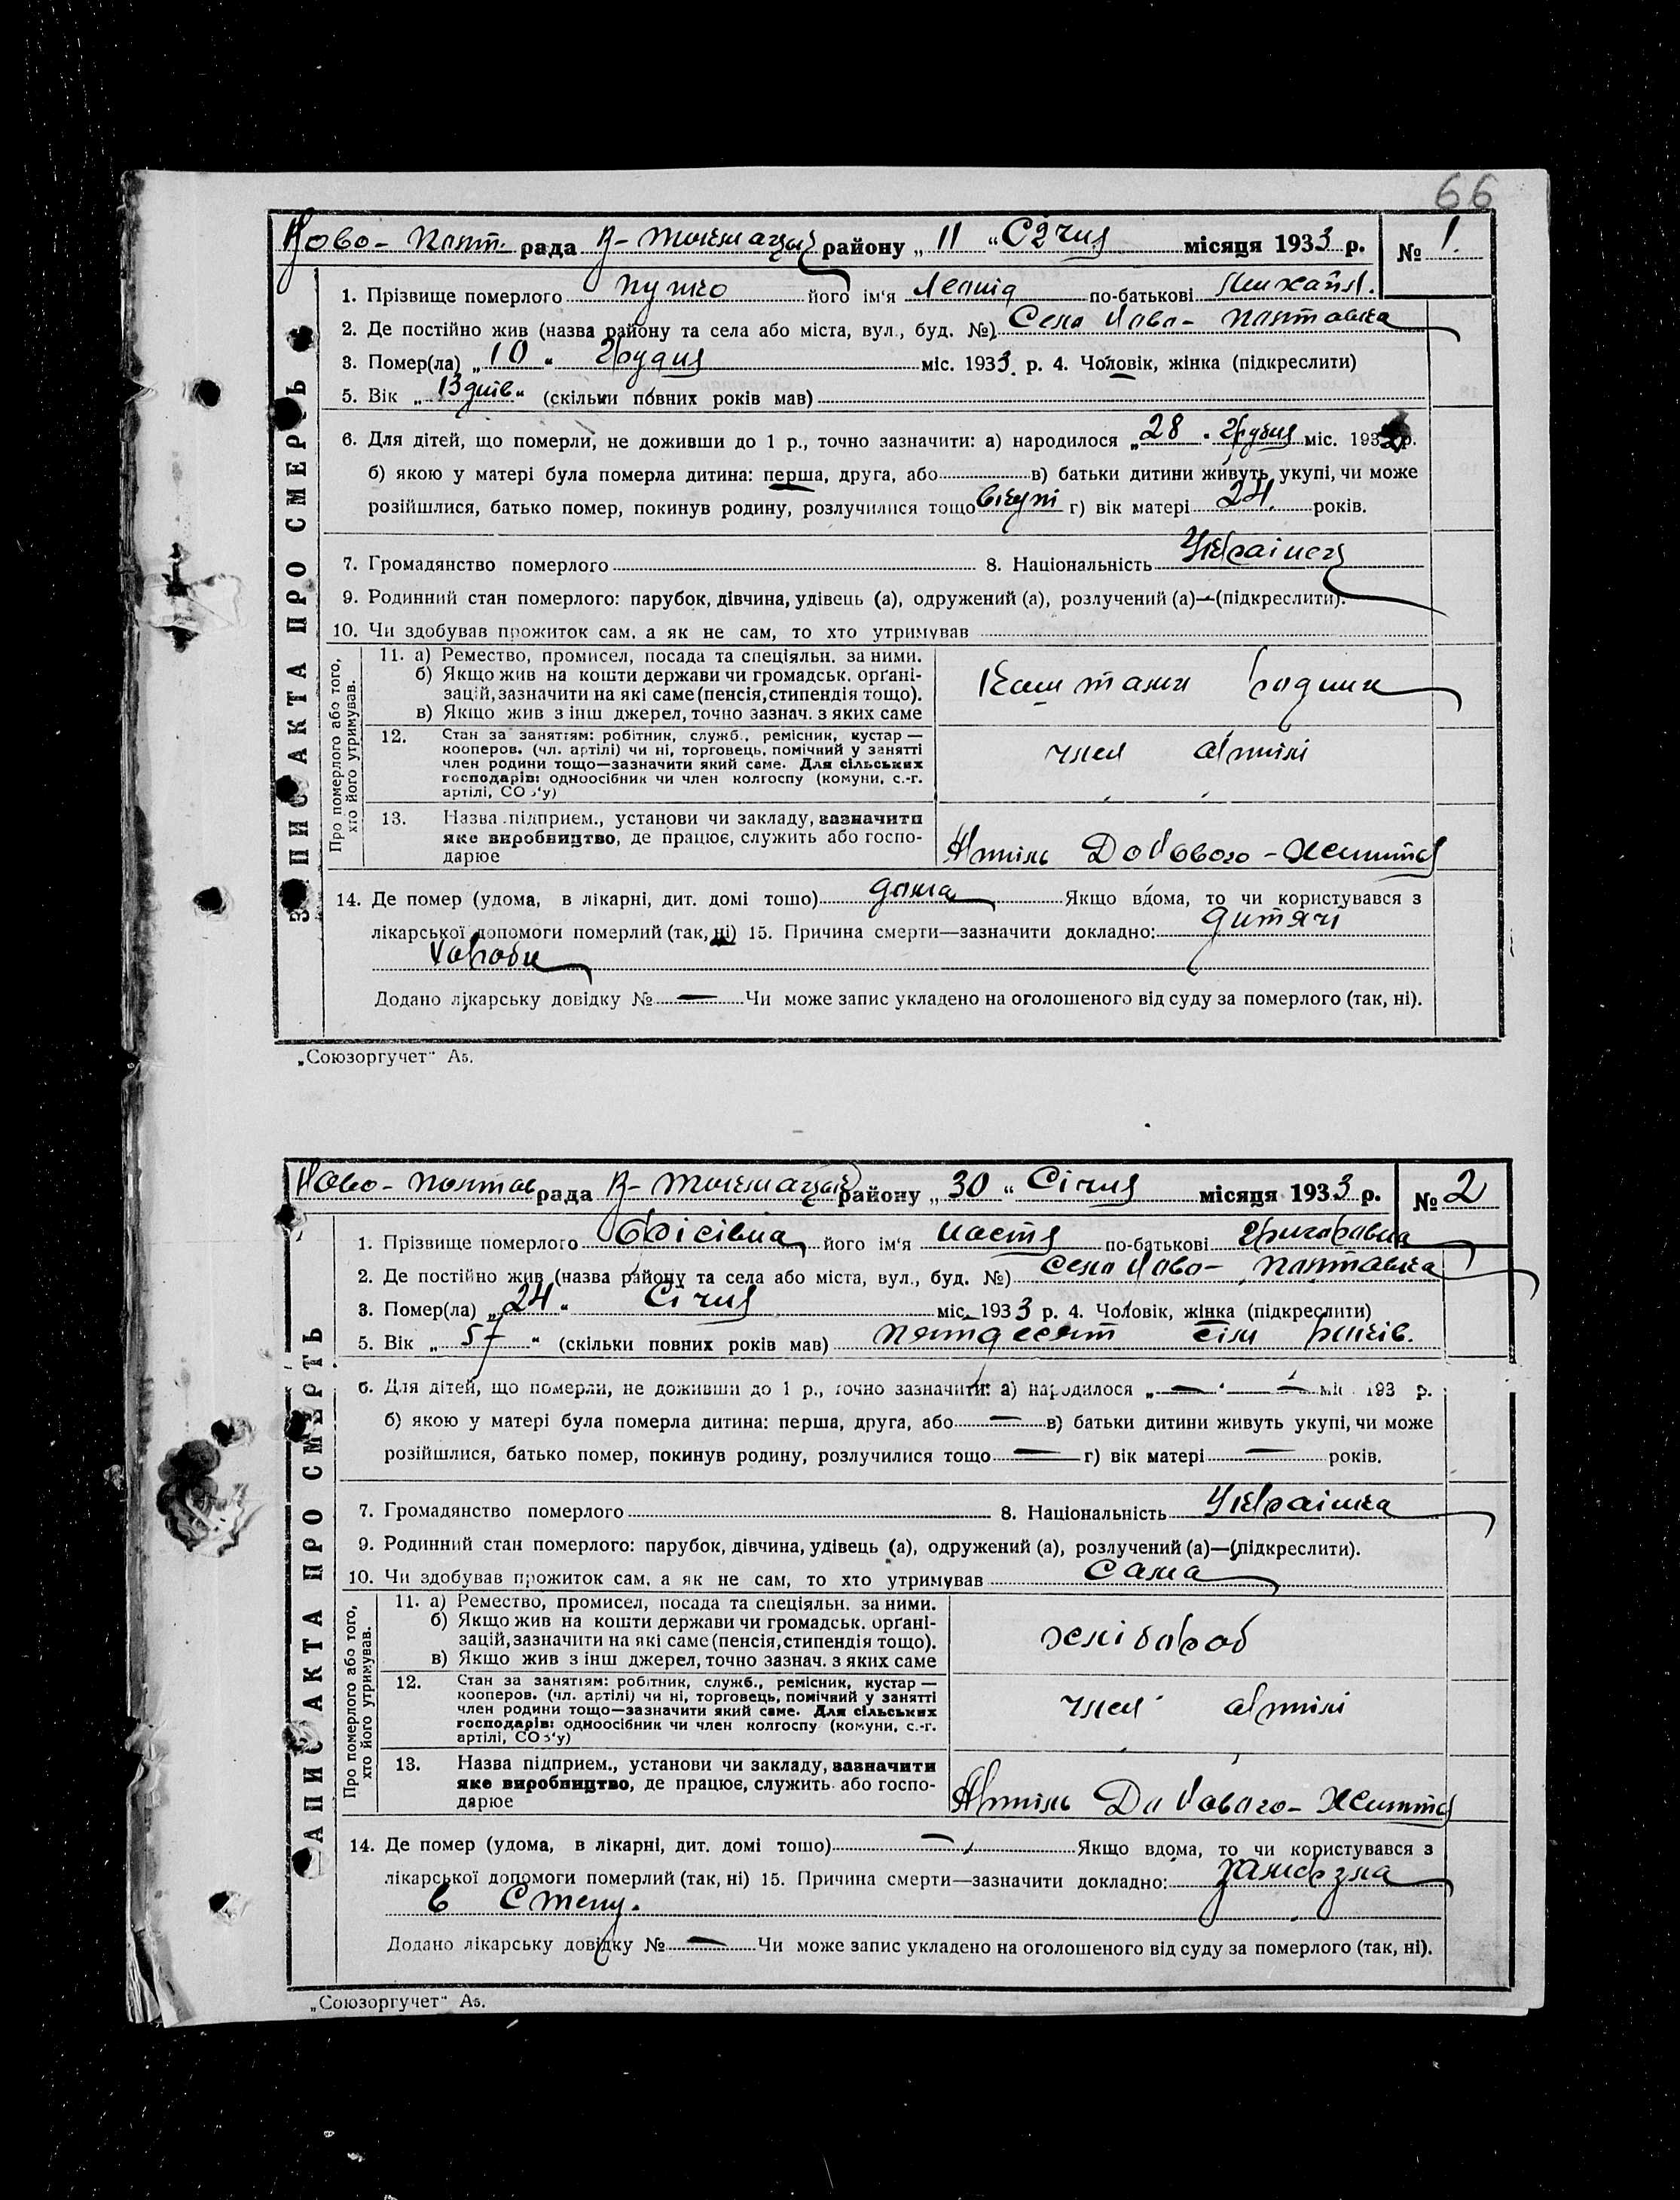 66
Ново-Полт. рада В-Токмацьк району „ 11 “ Січня місяця 1933 р. № 1.
ЗАПИС АКТА ПРО СМЕРТЬ
1. Прізвище померлого Путко його ім'я Леонід по-батькові Михайл.
2. Де постійно жив (назва району та села або міста, вул., буд. №) Село Ново-Полтавка
3. Помер(ла) „ 10 “ Грудня міс. 1933 р. 4. Чоловік, жінка (підкреслити)
5. Вік „ 13 днів “ (скільки повних років мав)
6. Для дітей, що померли, не доживши до 1 р., точно зазначити: а) народилося „ 28 . Грудня міс. 193 р.
б) якою у матері була померла дитина: перша, друга, або в) батьки дитини живуть укупі, чи може
розійшлися, батько помер, покинув родину, розлучилися тощо вкупі г) вік матері 24. років.
7. Громадянство померлого 8. Національність Українець
9. Родинний стан померлого: парубок, дівчина, удівець (а), одружений (а), розлучений (а)—(підкреслити).
10. Чи здобував прожиток сам, а як не сам, то хто утримував
Про померлого або того, хто його утримував.
11. а) Ремество, промисел, посада та спеціяльн. за ними.
б) Якщо жив на кошти держави чи громадськ. орґані-
зацій, зазначити на які саме (пенсія, стипендія тощо).
в) Якщо жив з інш джерел, точно зазнач. з яких саме
Коштами родини
12. Стан за заняттям: робітник, служб., ремісник, кустар —
кооперов. (чл. артілі) чи ні, торговець, помічний у занятті
член родини тощо—зазначити який саме. Для сільських
господарів: одноосібник чи член колгоспу (комуни, с.-г.
артілі, СОЗ'у)
член артілі
13. Назва підприєм., установи чи закладу, зазначити
яке виробництво, де працює, служить або госпо-
дарює
Артіль До Нового-Життя
14. Де помер (удома, в лікарні, дит. домі тошо) дома Якщо вдома, то чи користувався з
лікарської допомоги померлий (так, ні) 15. Причина смерти—зазначити докладно: дитячі
хороби
Додано лікарську довідку № — Чи може запис укладено на оголошеного від суду за померлого (так, ні).
„Союзоргучет“ А5.
Ново-Полтав рада В-Токмацьк району „ 30 “ Січня місяця 1933 р. № 2
ЗАПИС АКТА ПРО СМЕРТЬ
1. Прізвище померлого його ім'я Настя по-батькові Григоровна
2. Де постійно жив (назва району та села або міста, вул., буд. №) Село Ново-Полтавка
3. Помер(ла) „ 24 “ Січня міс. 1933 р. 4. Чоловік, жінка (підкреслити)
5. Вік „ 57 “ (скільки повних років мав) пятдесят сім років.
6. Для дітей, що померли, не доживши до 1 р., точно зазначити: а) народилося „ — . — міс. 193 р.
б) якою у матері була померла дитина: перша, друга, або — в) батьки дитини живуть укупі, чи може
розійшлися, батько помер, покинув родину, розлучилися тощо — г) вік матері — років.
7. Громадянство померлого 8. Національність Українка
9. Родинний стан померлого: парубок, дівчина, удівець (а), одружений (а), розлучений (а)—(підкреслити).
10. Чи здобував прожиток сам, а як не сам, то хто утримував Сама
Про померлого або того, хто його утримував.
11. а) Ремество, промисел, посада та спеціяльн. за ними.
б) Якщо жив на кошти держави чи громадськ. орґані-
зацій, зазначити на які саме (пенсія, стипендія тощо).
в) Якщо жив з інш джерел, точно зазнач. з яких саме
хлібороб
12. Стан за заняттям: робітник, служб., ремісник, кустар —
кооперов. (чл. артілі) чи ні, торговець, помічний у занятті
член родини тощо—зазначити який саме. Для сільських
господарів: одноосібник чи член колгоспу (комуни, с.-г.
артілі, СОЗ'у)
член артілі
13. Назва підприєм., установи чи закладу, зазначити
яке виробництво, де працює, служить або госпо-
дарює
Артіль До Нового-Життя
14. Де помер (удома, в лікарні, дит. домі тошо) — Якщо вдома, то чи користувався з
лікарської допомоги померлий (так, ні) 15. Причина смерти—зазначити докладно: замерзла
в Степу.
Додано лікарську довідку № — Чи може запис укладено на оголошеного від суду за померлого (так, ні).
„Союзоргучет“ А5.